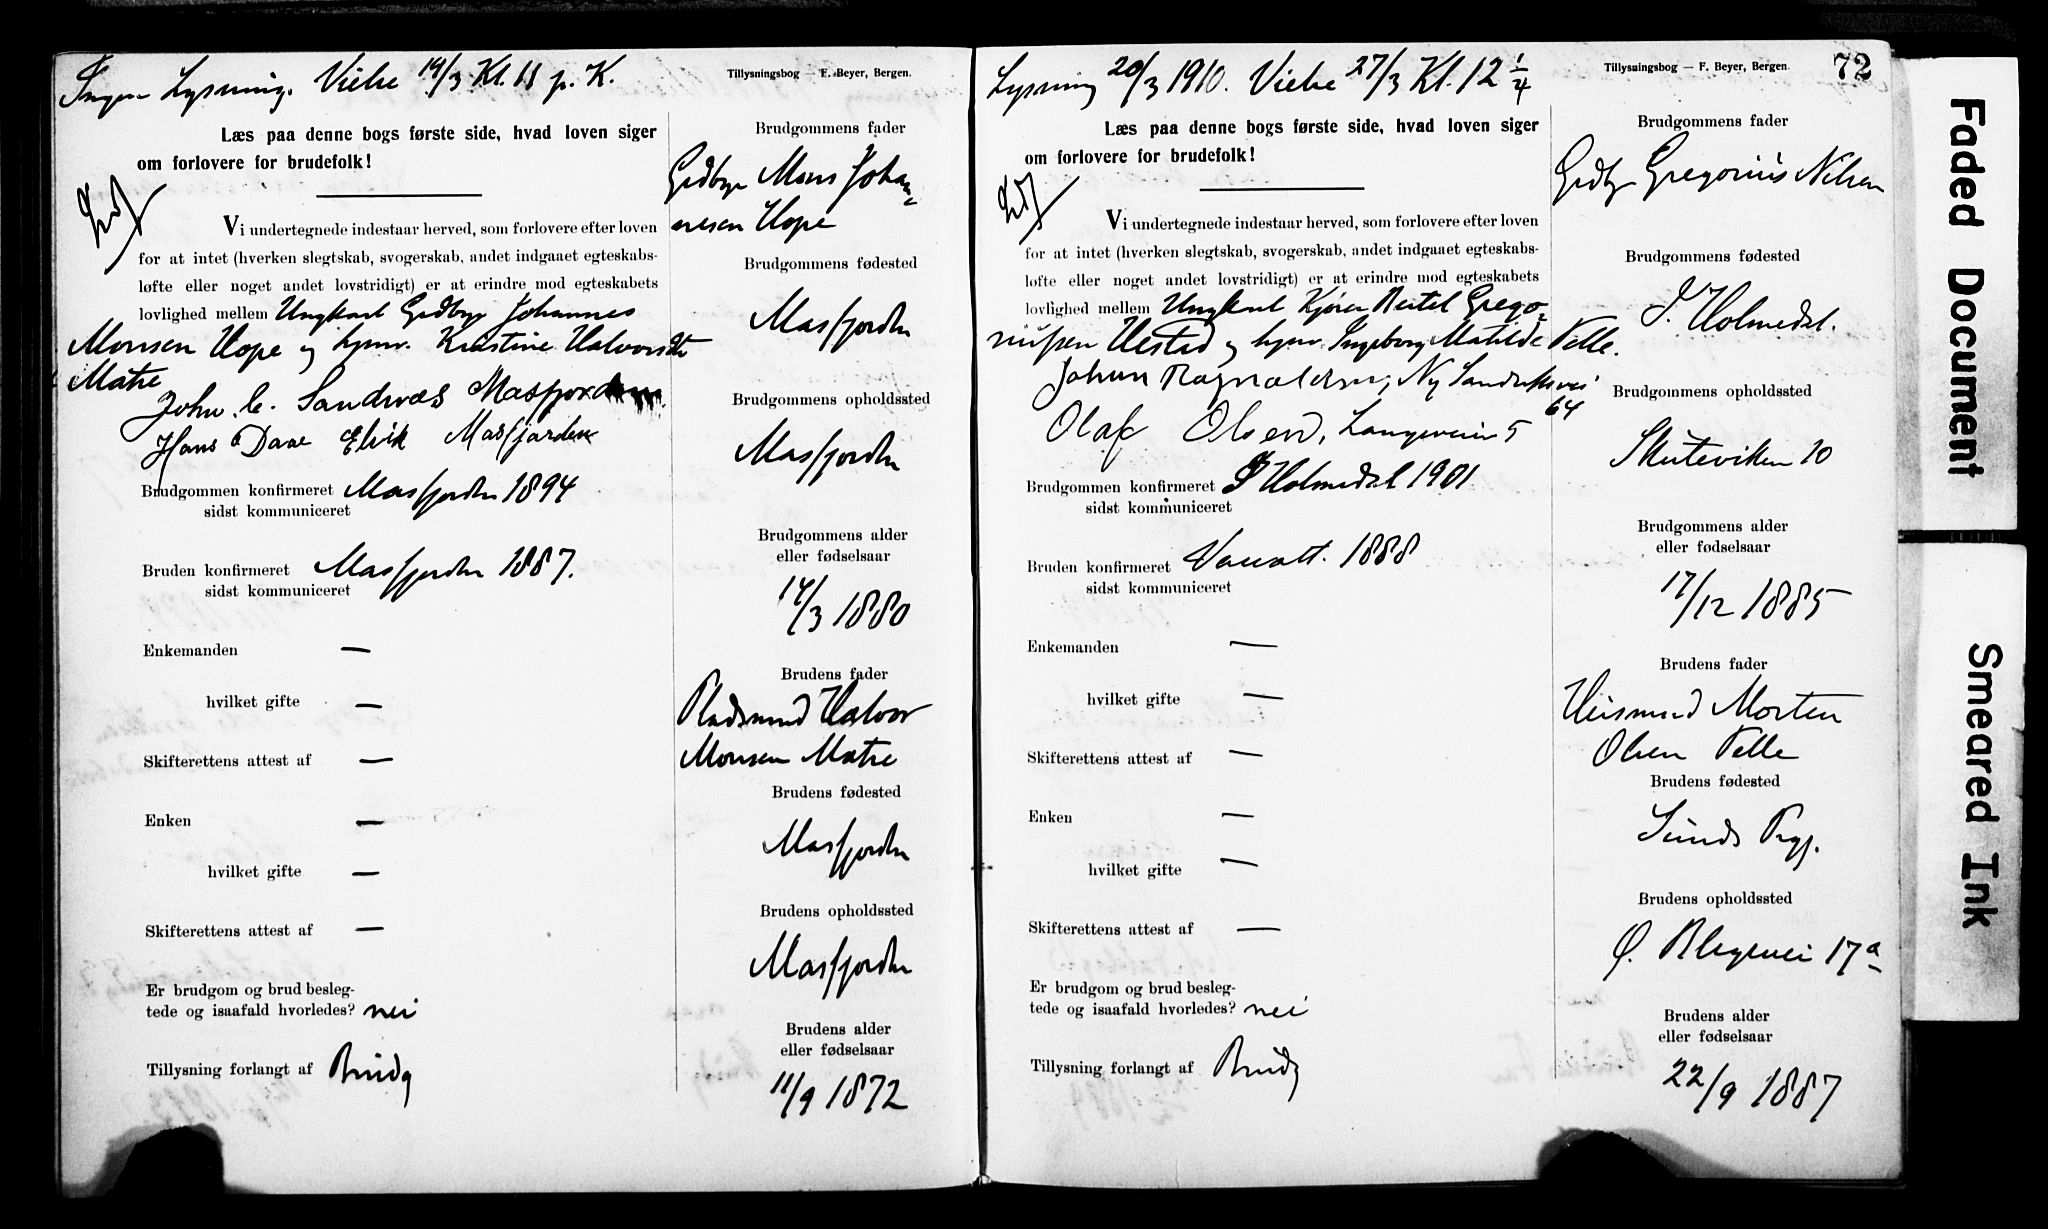 Ingen Lysning. Vielse 14/3 Kl. 11 p. K.
Tillysningsbog — F. Beyer, Bergen.
Læs paa denne bogs første side, hvad loven siger
om forlovere for brudefolk!
Vi undertegnede indestaar herved, som forlovere efter loven
for at intet (hverken slegtskab, svogerskab, andet indgaaet egteskabs-
løfte eller noget andet lovstridigt) er at erindre mod egteskabets
lovlighed mellem Ungkarl Grdbgr Johannes
Monsen Hope og hjmv. Kristine Halvorsdtr
Matre
John C. Sandnæs Masfjorden
Hans Daae Elvik Masfjorden
Brudgommen konfirmeret Masfjorden 1894
sidst kommuniceret
Bruden konfirmeret Masfjorden 1887.
sidst kommuniceret
Enkemanden —
hvilket gifte —
Skifterettens attest af —
Enken —
hvilket gifte —
Skifterettens attest af —
Er brudgom og brud besleg-
tede og isaafald hvorledes? nei
Tillysning forlangt af Brudg
Brudgommens fader
Grdbgr Mons Johan-
nesen Hope
Brudgommens fødested
Masfjorden
Brudgommens opholdssted
Masfjorden
Brudgommens alder
eller fødselsaar
14/3 1880
Brudens fader
Pladsmand Halvor
Monsen Matre
Brudens fødested
Masfjorden
Brudens opholdssted
Masfjorden
Brudens alder
eller fødselsaar
11/9 1872
Lysning 20/3 1910. Vielse 27/3 Kl. 12 1/4
Tillysningsbog — F. Beyer, Bergen.
72
Læs paa denne bogs første side, hvad loven siger
om forlovere for brudefolk!
Vi undertegnede indestaar herved, som forlovere efter loven
for at intet (hverken slegtskab, svogerskab, andet indgaaet egteskabs-
løfte eller noget andet lovstridigt) er at erindre mod egteskabets
lovlighed mellem Ungkarl Kjører Bertel Grego-
riussen Hestad og hjmv. Ingeborg Matilde Telle.
Johan Ragnaldsen, Ny Sandviksvei
64
Olaf Olsen, Langeveien 5
Brudgommen konfirmeret Y Holmedal 1901
sidst kommuniceret
Bruden konfirmeret 1888
sidst kommuniceret
Enkemanden —
hvilket gifte —
Skifterettens attest af —
Enken —
hvilket gifte —
Skifterettens attest af —
Er brudgom og brud besleg-
tede og isaafald hvorledes? nei
Tillysning forlangt af Brudg
Brudgommens fader
Grdbgr Gregorius Nilsen
Brudgommens fødested
Y. Holmedal.
Brudgommens opholdssted
Skuteviken 10
Brudgommens alder
eller fødselsaar
17/12 1885
Brudens fader
Husmand Morten
Olsen Telle
Brudens fødested
Sunds Prgj.
Brudens opholdssted
Ø. Blegevei 17a
Brudens alder
eller fødselsaar
22/9 1887
Faded Document
Smeared Ink